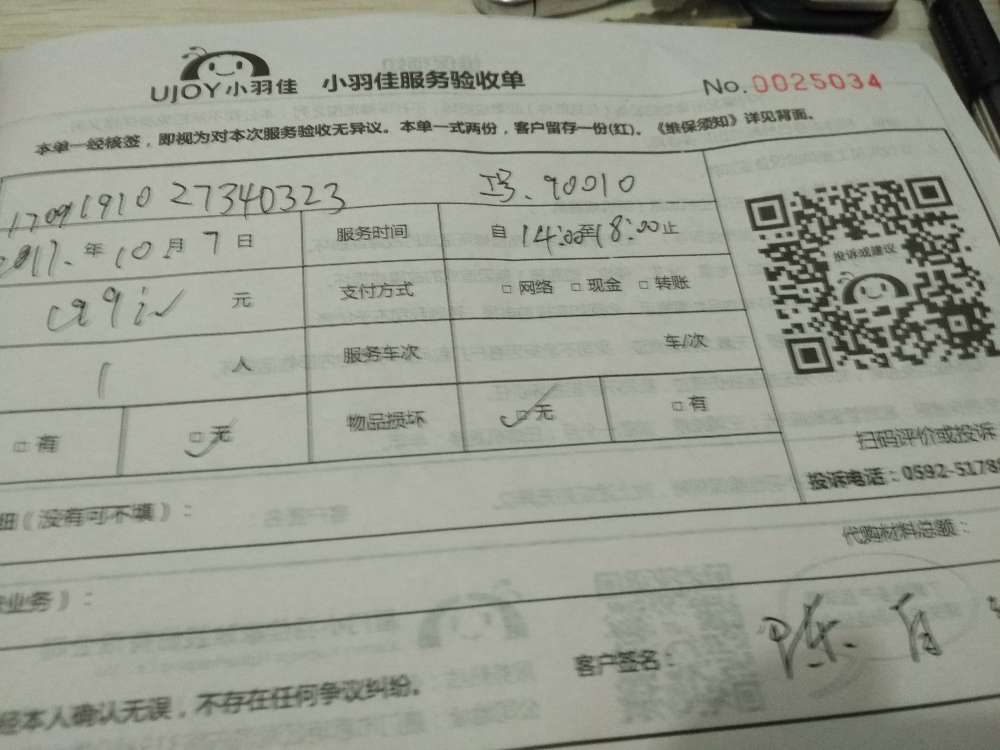 UJOY小羽佳 小羽佳服务验收单 No.0025034
本单一经核签，即视为对本次服务验收无异议。本单一式两份，客户留存一份(红)。《维保须知》详见背面。
1709191027340323 工号.90010
2017.年10月7日 服务时间 自14:00至18:00止
元 支付方式 □网络 □现金 □转账
1人 服务车次 车/次
□有 □无 物品损坏 □无 □有
投诉或建议
扫码评价或投诉
投诉电话：0592-5178
细（没有可不填）：
代购材料总额：
业务）：
客户签名：陈
经本人确认无误，不存在任何争议纠纷。